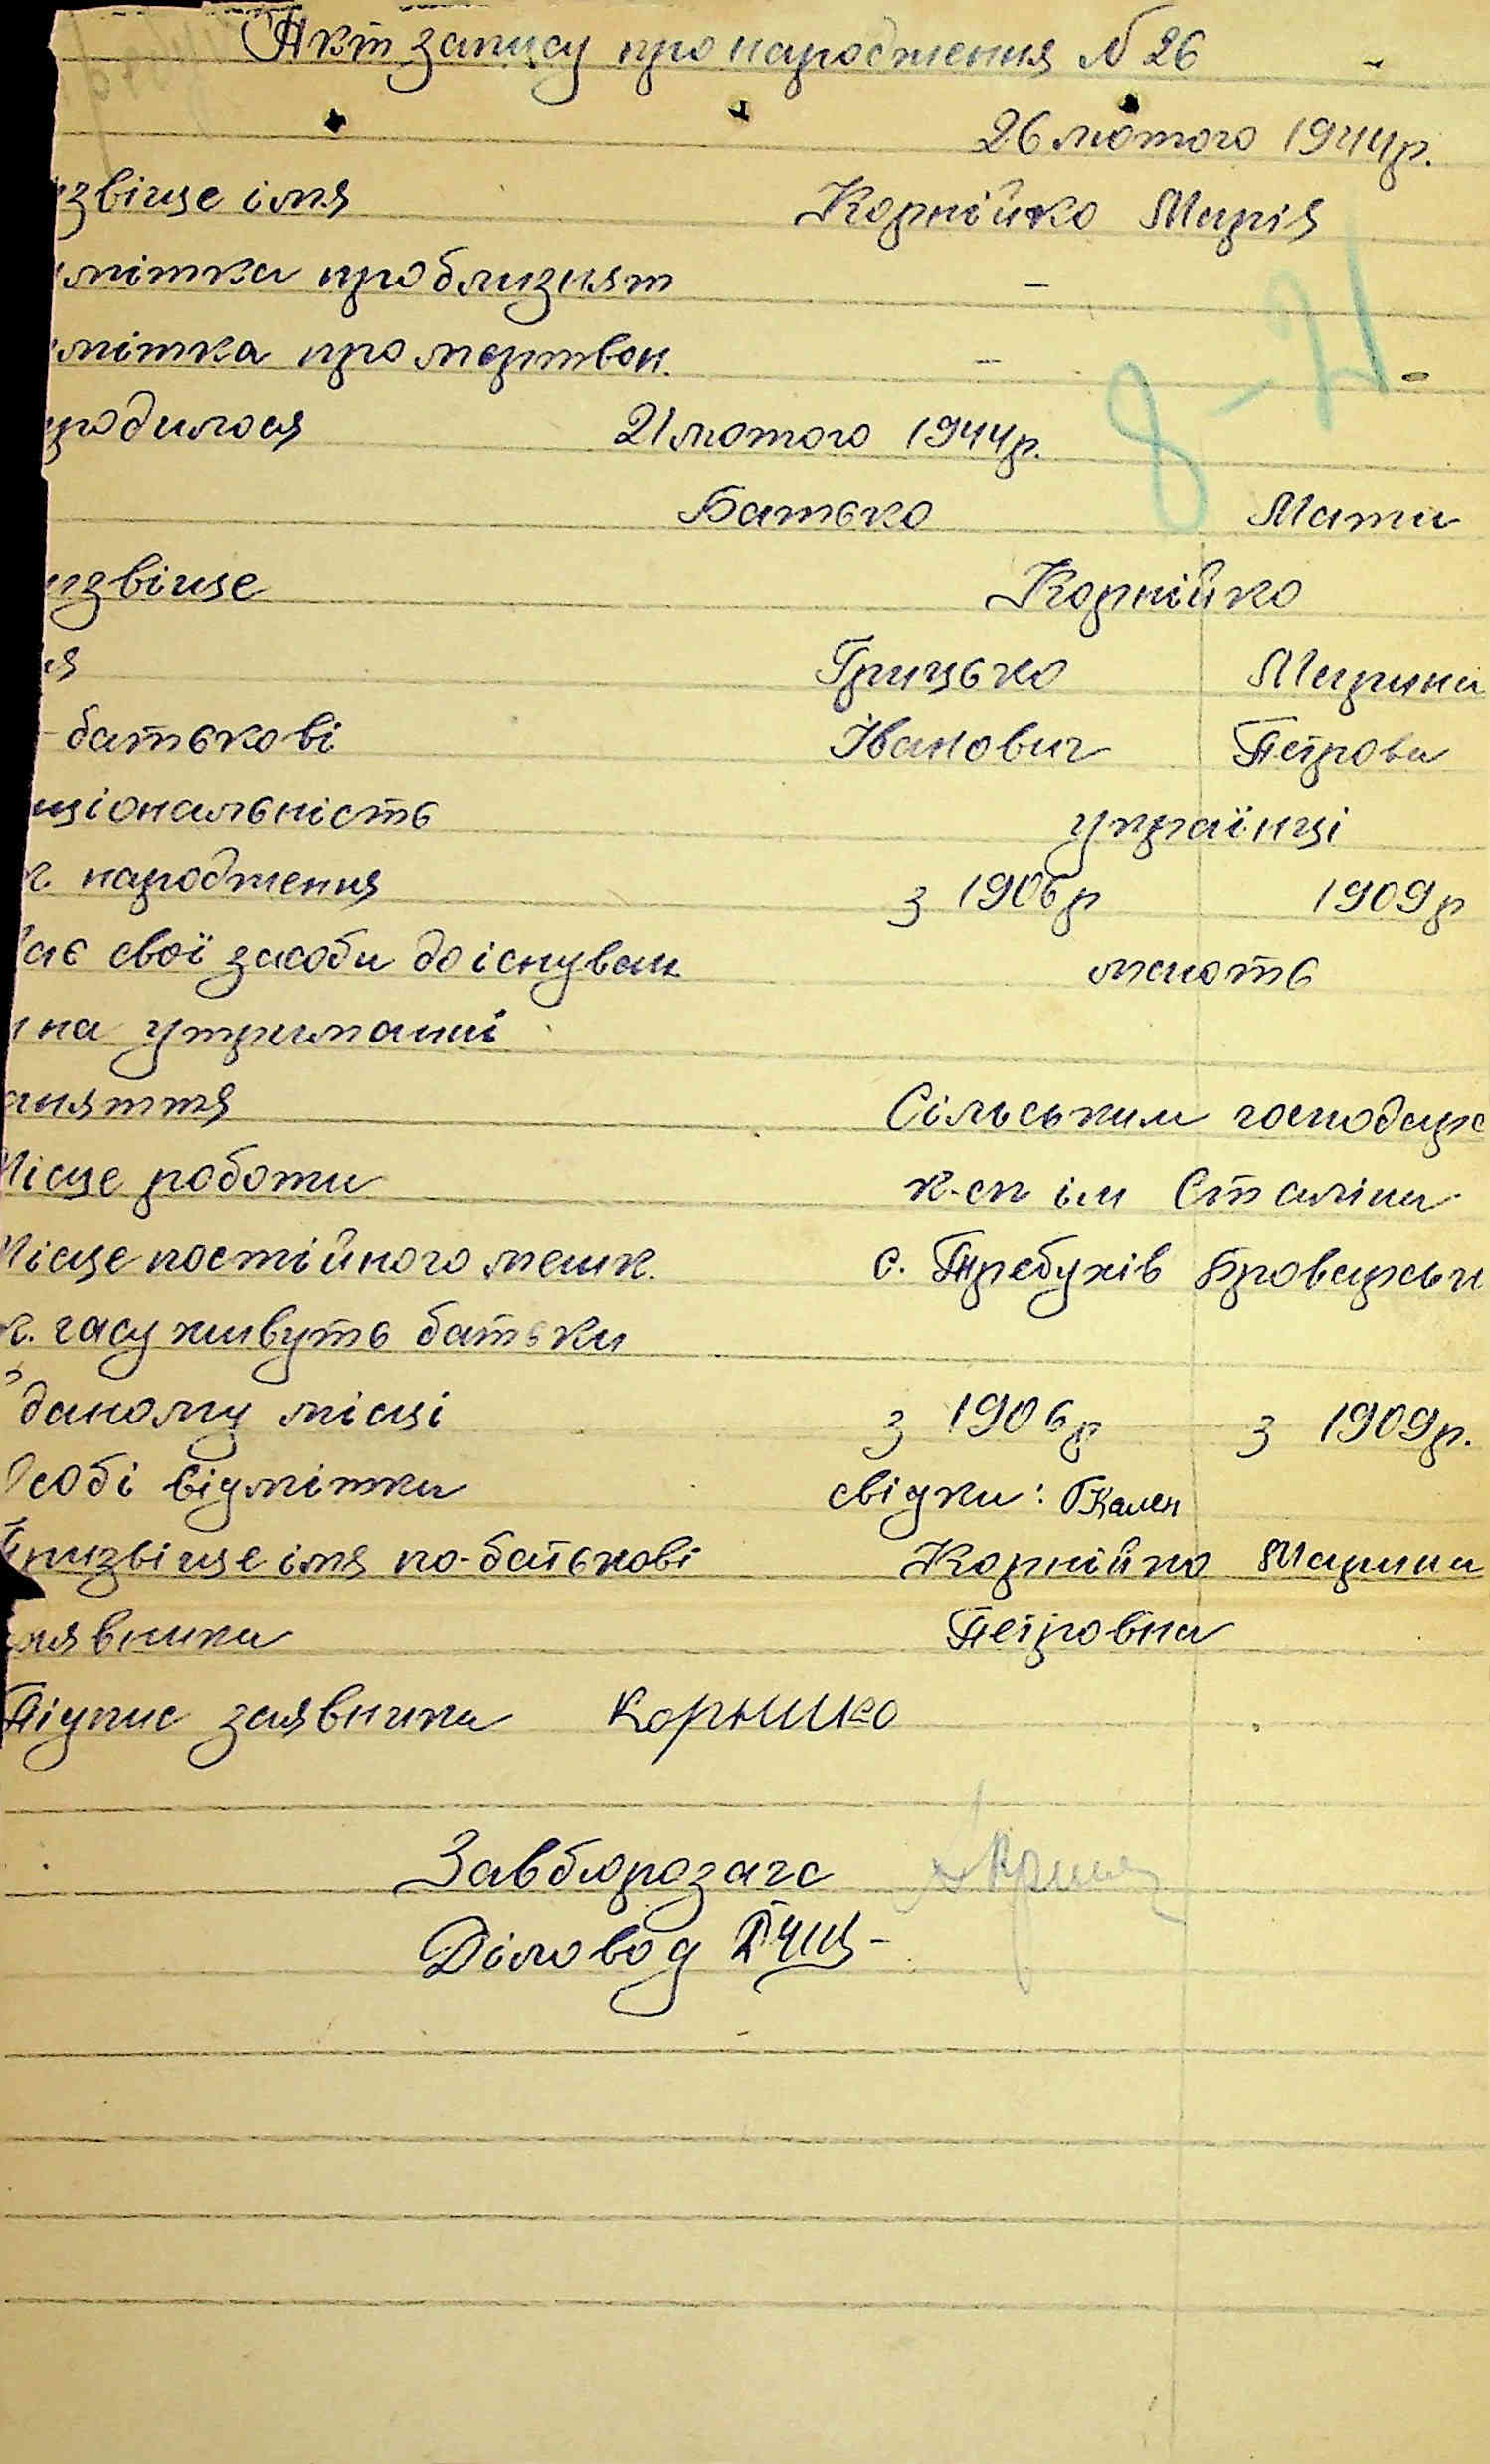 Акт запису про народження № 26
26 лютого 1944р.
ізвіще імя Корнійко Марія
мітка про близнят -
мітка про мертвон. -
8-21
родилося 21 лютого 1944р.
Батько Мати
ізвіще Корнійко
я Грицько Марина
-батькові Іванович Петровн
ціональність українці
к. народження з 1906р 1909р
ає свої засоби до існуван мають
на утриманні
аняття Сільським господар
Місце роботи к-сп ім Сталіна
Місце постійного мешк. с. Требухів Броварськ
к. часу живуть батьки
даному місці з 1906р з 1909р.
Особі відмітки свідки:
Призвіще імя по-батькові Корнійко Марина
аявника Петровна
Підпис заявника Корнийко
Завбюрозагс
Діловод